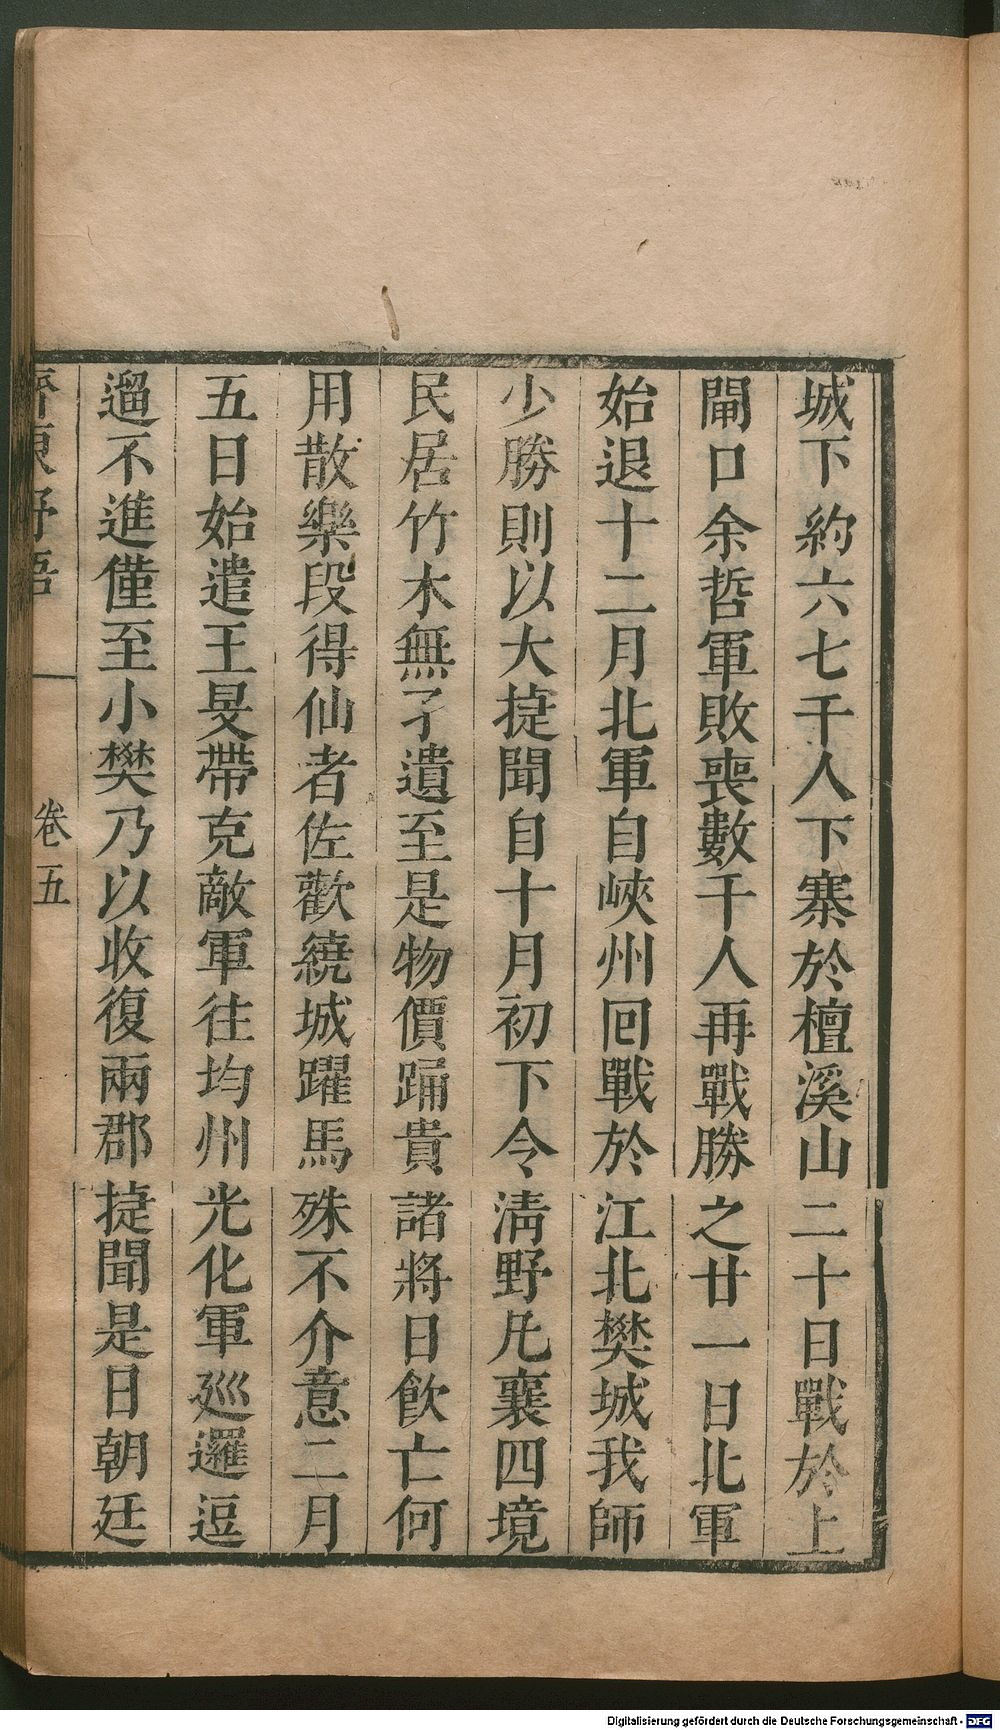 城下約六七千人下寨於檀溪山二十日戰於上
閘口余哲軍敗喪數千人再戰勝之廿一日北軍
始退十二月北軍自峽州回戰於江北樊城我師
少勝則以大捷聞自十月初下令清野凢襄四境
民居竹木無孑遺至是物價踊貴諸將日飲亡何
用散樂段得仙者佐歡繞城躍馬殊不介意二月
五日始遣王旻帶克敵軍往均州光化軍巡邏逗
遛不進僅至小樊乃以收復兩郡捷聞是日朝廷
齊東野語 卷五
Digitalisierung gefördert durch die Deutsche Forschungsgemeinschaft - DFG